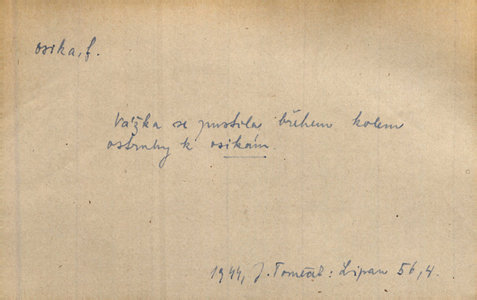 osika, f.
Vážka se pustila břehem kolem
ostruhy k osikám.
1944, J. Tomeček: Lipan 56, 4.